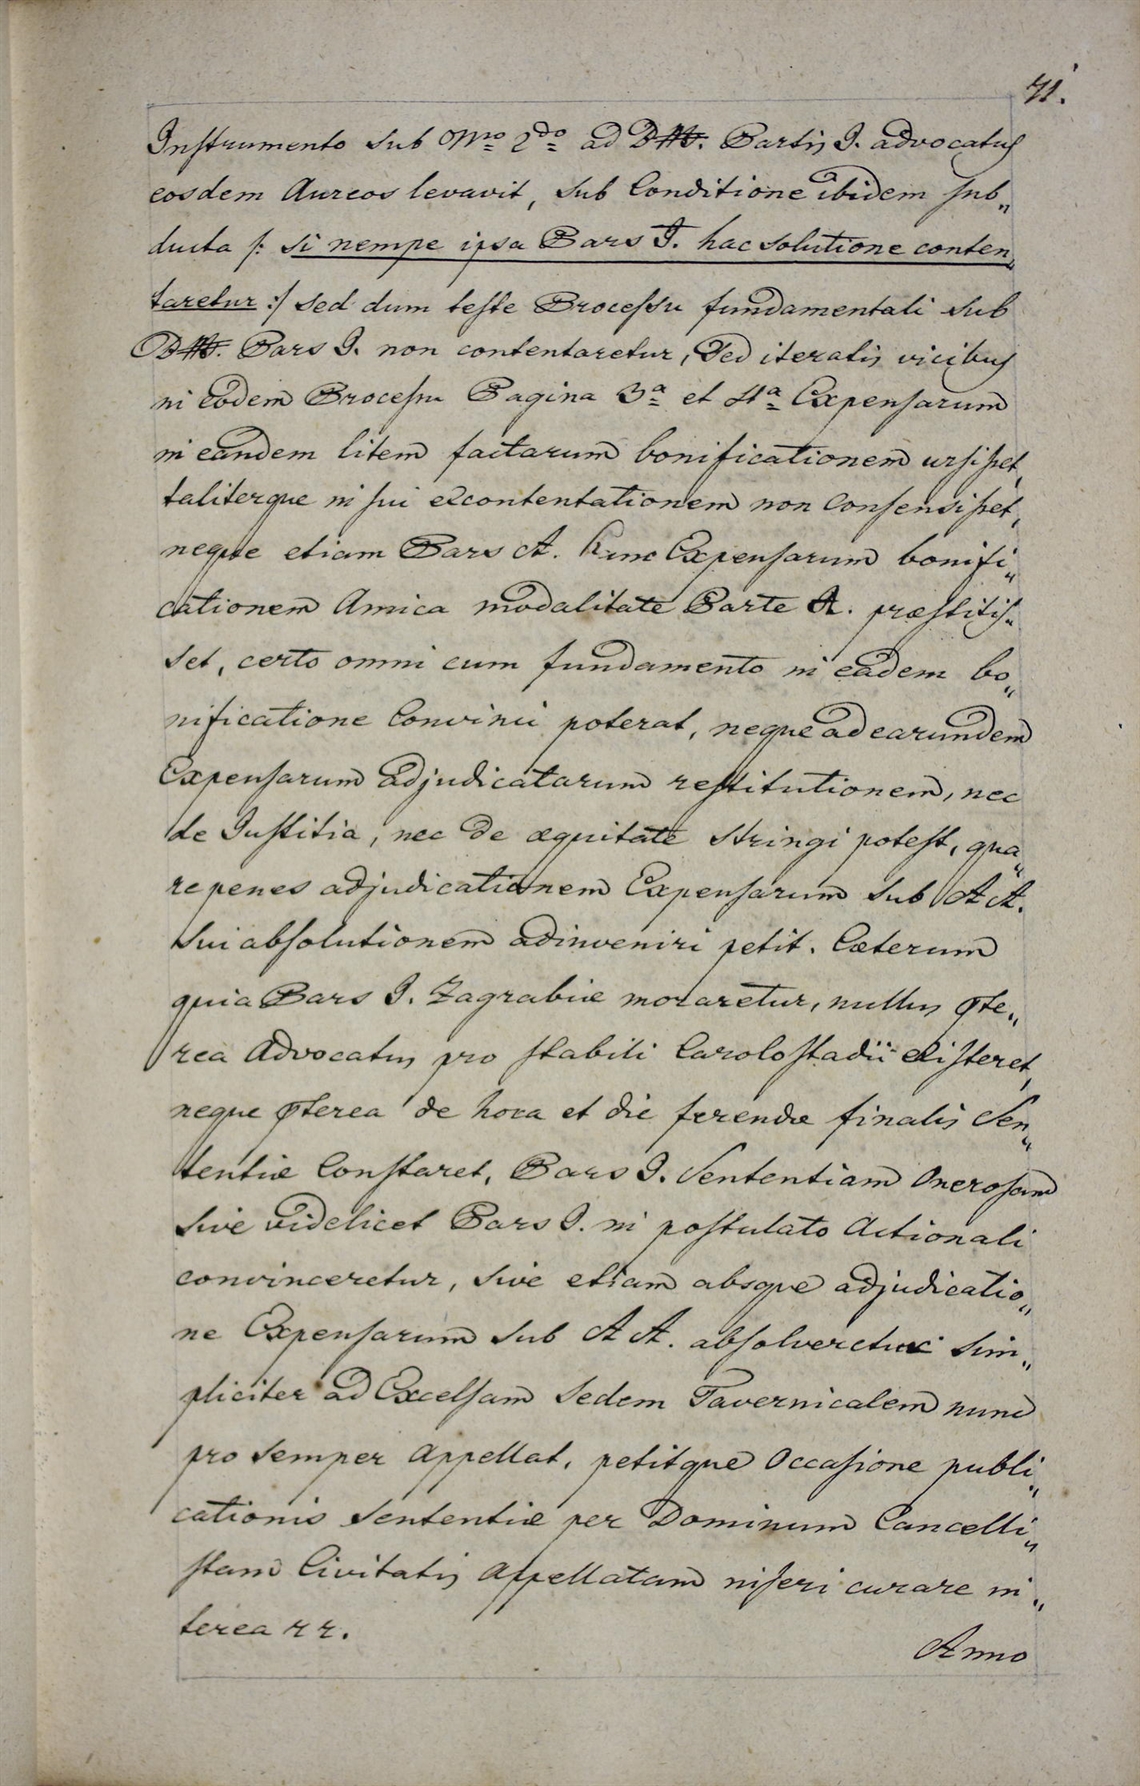 71.
Instrumento sub Nro 2do ad Partis I. advocatus
eosdem Aureos levavit, sub Conditione ibidem sub„
ducta /: si nempe ipsa Pars I. hac solutione conten„
taretur :/ sed dum teste Processu fundamentali sub
Pars I. non contentaretur, sed iteratis vicibus
in eodem Processu Pagina 3a et 4a Expensarum
in eandem litem factarum bonificationem ursisset,
taliterque in sui excontentationem non Consensisset,
neque etiam Pars A. hanc Expensarum bonifi„
cationem Amica modalitate Parte A. præstitis„
set, certo omni cum fundamento in eadem bo„
nificatione Convinci poterat, neque ad earundem
Expensarum adjudicatarum restitutionem, nec
de Justitia, nec de æquitate stringi potest, qua„
re penes adjudicationem Expensarum sub AA.
sui absolutionem adinveniri petit. Cæterum
quia Pars I. Zagrabiæ moraretur, nullus
rea Advocatus pro stabili Carolostadii existeret,
neque de hora et die ferendæ finalis Sen„
tentiæ Constaret, Pars I. Sententiam Onerosam
sive videlicet Pars I. in postulato Actionali
convinceretur, sive etiam absque adjudicatio„
ne Expensarum sub AA. absolveretur sim„
pliciter ad Excelsam Sedem Tavernicalem nunc
pro semper Appellat, petitque Occasione publi„
cationis Sententiæ per Dominum Cancelli„
stam Civitatis Appellatam inseri curare in„
terea rr.
Anno